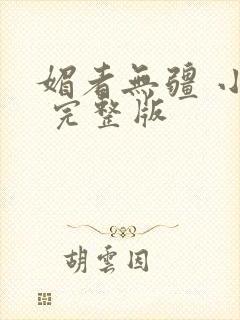 媚者無疆 小
完整版
胡雲因